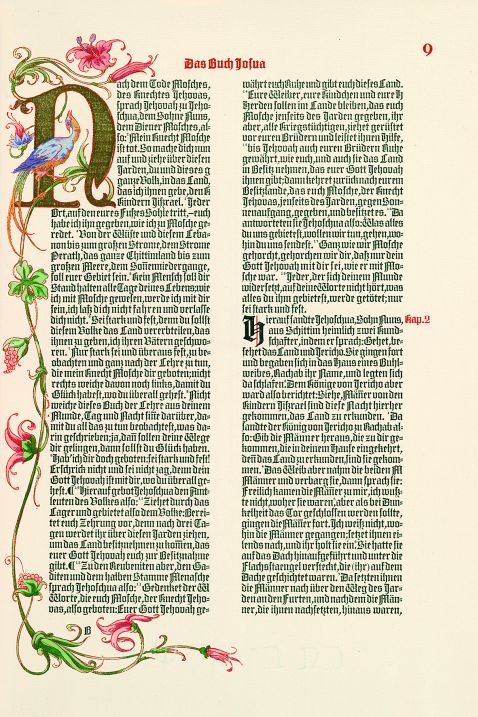 Das Buch Josua
9
Nach dem Tode Mosches,
des Knechtes Jehovas,
sprach Jehovah zu Jeho-
schua, dem Sohne Nuns,
dem Diener Mosches, al-
so: Mein Knecht Mosche
ist tot. So mache dich nun
auf und ziehe über diesen
Jarden, du und dieses
ganze Volk, in das Land,
das ich ihnen gebe, den
Kindern Jißrael. Jeder
Ort, auf den eures Fußes Sohle tritt, – euch
habe ich ihn gegeben, wie ich zu Mosche ge-
redet. Von der Wüste und diesem Leba-
non bis zum großen Strome, dem Strome
Perath, das ganze Chittimland bis zum
großen Meere, dem Sonnenniedergange,
soll euer Gebiet sein. Kein Mensch soll dir
Stand halten alle Tage deines Lebens; wie
ich mit Mosche gewesen, werde ich mit dir
sein, ich laß dich nicht fahren und verlasse
dich nicht. Sei stark und fest, denn du sollst
diesem Volke das Land vererbteilen, das
ihnen zu geben, ich ihren Vätern geschwo-
ren. Nur stark sei und überaus fest, zu be-
obachten und ganz nach der Lehre zu tun,
die mein Knecht Mosche dir geboten; nicht
rechts weiche davon noch links, damit du
Glück habest, wo du überall gehest. Nicht
weiche dieses Buch der Lehre aus deinem
Munde, Tag und Nacht sinne darüber, da-
mit du all das zu tun beobachtest, was da-
rin geschrieben; ja, dann sollen deine Wege
dir gelingen, dann sollst du Glück haben.
Hab' ich dir doch geboten: sei stark und fest!
Erschrick nicht und sei nicht zag, denn dein
Gott Jehovah ist mit dir, wo du überall ge-
hest. ¶ Hierauf gebot Jehoschua den Amt-
leuten des Volkes also: Ziehet durch das
Lager und gebietet also dem Volke: Berei-
tet euch Zehrung vor, denn nach drei Ta-
gen werdet ihr über diesen Jarden ziehen,
um das Land besitznehmen zu kommen, das
euer Gott Jehovah euch zur Besitznahme
gibt. ¶ Zu den Reubeniten aber, den Ga-
diten und dem halben Stamme Menasche
sprach Jehoschua also: Gedenket der
Worte, die euch Mosche, der Knecht Jeho-
vas, also geboten: Euer Gott Jehovah ge-
B
währt euch Ruhe und gibt euch dieses Land.
Eure Weiber, eure Kindchen und eure
Herden sollen im Lande bleiben, das euch
Mosche jenseits des Jarden gegeben, ihr
aber, alle Kriegstüchtigen, ziehet gerüstet
vor euren Brüdern und leistet ihnen Hilfe,
bis Jehovah auch euren Brüdern Ruhe
gewährt, wie euch, und auch sie das Land
in Besitz nehmen, das euer Gott Jehovah
ihnen gibt; dann kehret zurück nach eurem
Besitzlande, das euch Mosche, der Knecht
Jehovas, jenseits des Jarden, gegen Son-
nenaufgang, gegeben, und besitzet es. Da
antworteten sie Jehoschua also: Was alles
du uns gebietest, wollen wir tun, gehen, wo-
hin du uns sendest. Ganz wie wir Mosche
gehorcht, gehorchen wir dir, daß nur dein
Gott Jehovah mit dir sei, wie er mit Mo-
sche war. Jeder, der sich deinem Munde
widersetzt, auf deine Worte nicht hört, was
alles du ihm gebietest, werde getötet; nur
sei stark und fest.
Hierauf sandte Jehoschua, Sohn Nuns, Kap. 2
aus Schittim heimlich zwei Kund-
schafter, indem er sprach: Gehet, be-
sehet das Land und Jericho. Sie gingen fort
und begaben sich in das Haus eines Buhl-
weibes, Rachab ihr Name, und legten sich
da schlafen. Dem Könige von Jericho aber
ward also berichtet: Siehe, Männer von den
Kindern Jißrael sind diese Nacht hierher
gekommen, das Land zu erkunden. Da
sandte der König von Jericho zu Rachab al-
so: Gib die Männer heraus, die zu dir ge-
kommen, die in deinem Hause eingekehrt,
denn das Land zu erkunden, sind sie gekom-
men. Das Weib aber nahm die beiden
Männer und verbarg sie, dann sprach sie:
Freilich kamen die Männer zu mir, ich wuß-
te nicht, woher sie waren, aber als bei Dun-
kelheit das Tor geschlossen werden sollte,
gingen die Männer fort. Ich weiß nicht, wo-
hin die Männer gegangen; setzet ihnen ei-
lends nach, und ihr holt sie ein. Sie hatte sie
auf das Dach hinaufgeführt und unter die
Flachsstängel versteckt, die (ihr) auf dem
Dache geschichtet waren. Da setzten ihnen
die Männer nach über den Weg des Jar-
den an den Furten, und nachdem die Män-
ner, die ihnen nachsetzten, hinaus waren,